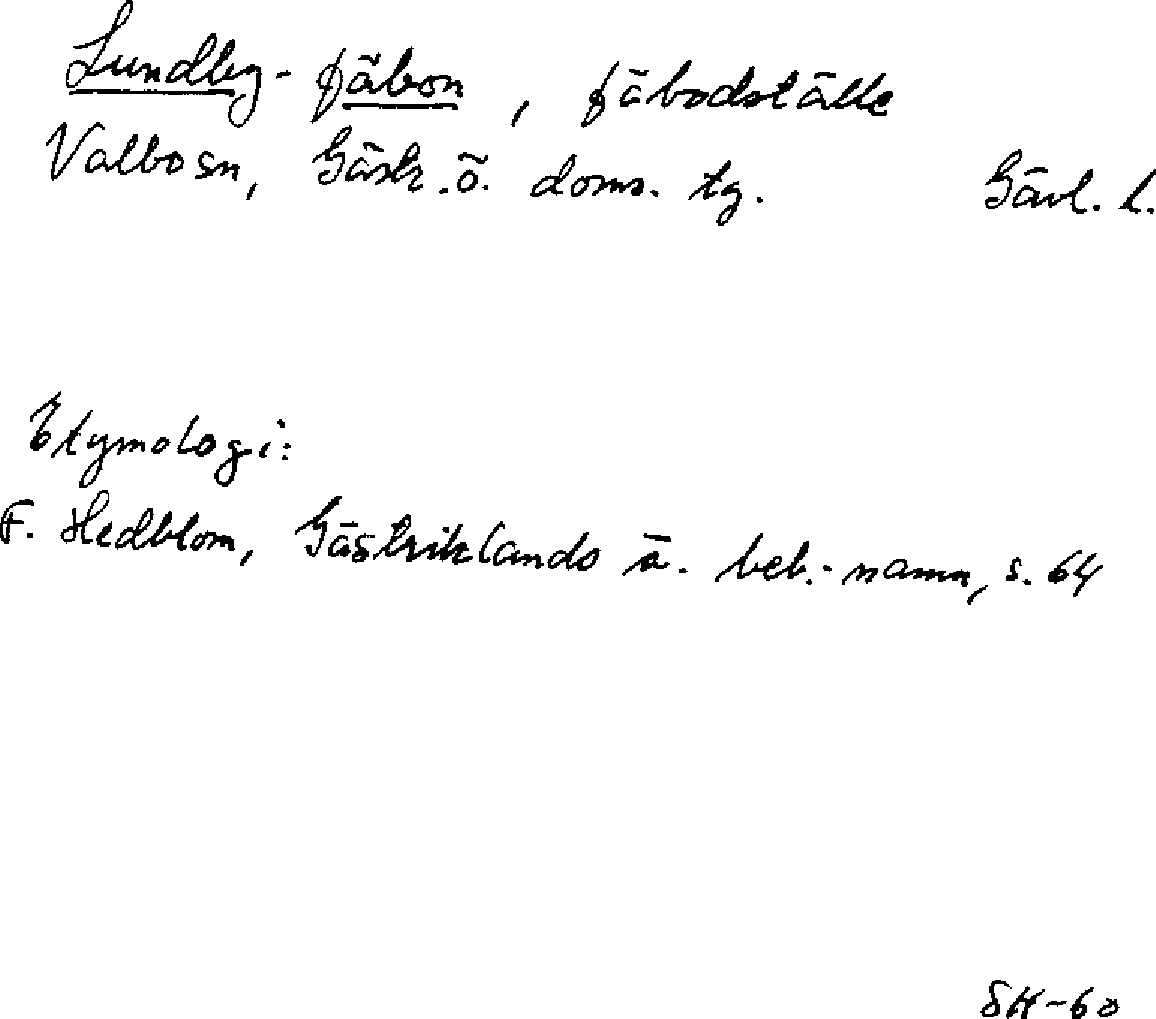 Lundby-fäbon, fäbodställe
Valbo sn, Gästr. ö. doms. tg. Gävl. l.
Etymologi:
F. Hedblom, Gästriklands ä. beb.-namn, s. 64
SH-60